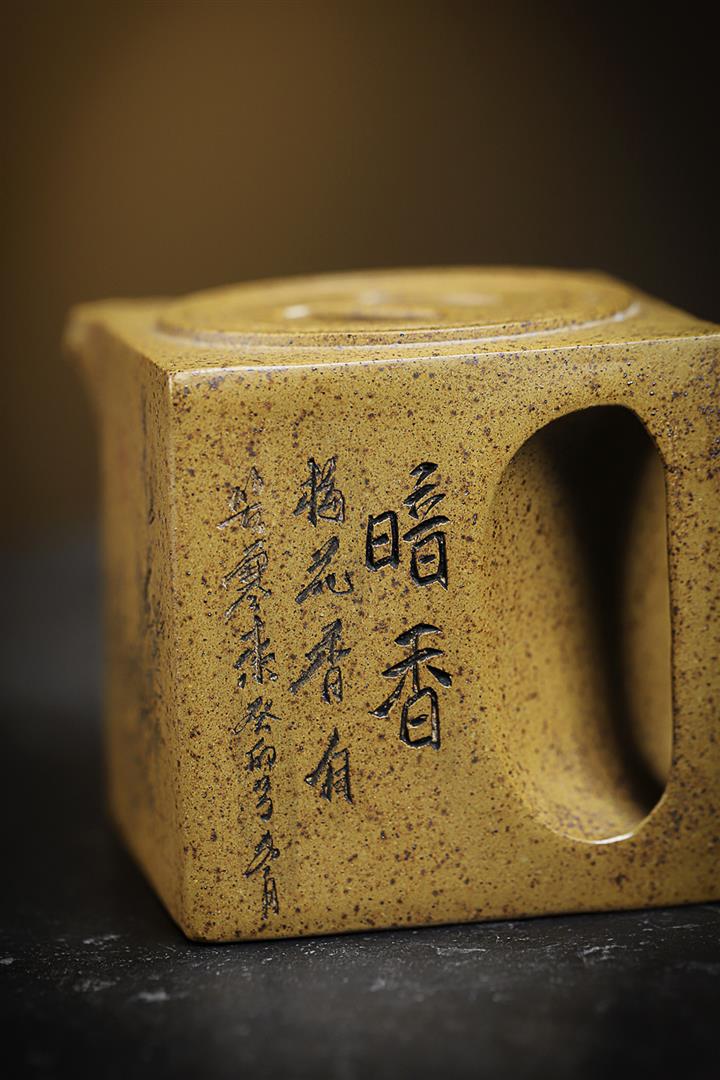 暗香
梅花香自
苦寒来癸卯
月